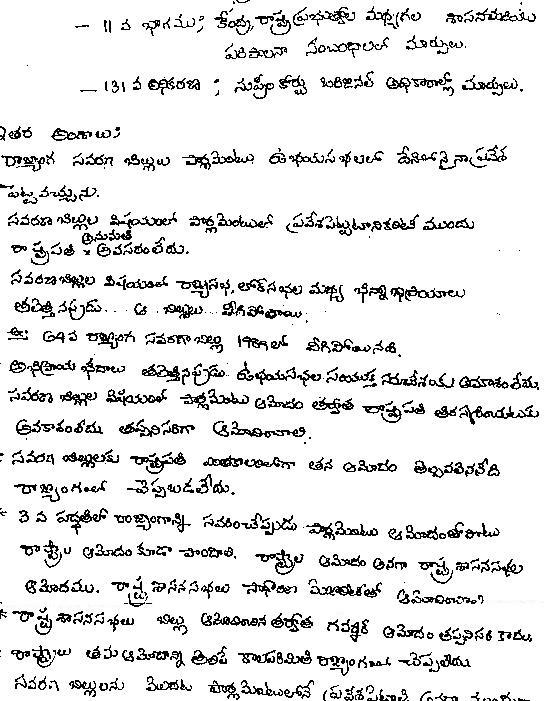 — 11 వ భాగము ; కేంద్ర, రాష్ట్ర ప్రభుత్వాల మధ్యగల శాసనమరియు
పరిపాలనా సంబంధాలలో మార్పులు.
— 131 వ అధికరణ ; సుప్రీం కోర్టు ఒరిజినల్ అధికారాల్లో మార్పులు.
ఇతర అంశాలు ;
రాజ్యాంగ సవరణ బిల్లులు పార్లమెంటు ఉభయసభలలో దేనిలోనైనా ప్రవేశ
పెట్టవచ్చును.
సవరణ బిల్లుల విషయంలో పార్లమెంటులో ప్రవేశపెట్టటానికంటే ముందు
రాష్ట్రపతి అనుమతి అవసరంలేదు.
సవరణ బిల్లుల విషయంలో రాజ్యసభ, లోక్‌సభల మధ్య భిన్నాభిప్రాయాలు
తలెత్తినప్పుడు... ఆ బిల్లులు వీగిపోతాయి.
ఉ: 64వ రాజ్యాంగ సవరణ బిల్లు 1989లో వీగిపోయినది.
అభిప్రాయ భేదాలు తలెత్తినప్పుడు ఉభయసభల సంయుక్త సమావేశముకు అవకాశంలేదు.
సవరణ బిల్లుల విషయంలో పార్లమెంటు ఆమోదం తర్వాత రాష్ట్రపతి తిరస్కరించుటకు
అవకాశంలేదు తప్పనిసరిగా ఆమోదించాలి.
* సవరణ బిల్లులకు రాష్ట్రపతి ఎంతకాలంలోగా తన ఆమోదం తెల్పవలెనన్నది
రాజ్యాంగంలో చెప్పబడలేదు.
* 3 వ పద్ధతిలో రాజ్యాంగాన్ని సవరించేప్పుడు పార్లమెంటు ఆమోదంతోపాటు
రాష్ట్రాల ఆమోదం కూడా పొందాలి. రాష్ట్రాల ఆమోదం అనగా రాష్ట్ర శాసనసభల
ఆమోదము. రాష్ట్ర శాసనసభలు సాధారణ మెజారిటీతో ఆమోదించాలి.
* రాష్ట్ర శాసనసభలు బిల్లు ఆమోదించిన తర్వాత గవర్నర్ ఆమోదం తప్పనిసరి కాదు.
* రాష్ట్రాలు తమ ఆమోదాన్ని తెలిపే కాలపరిమితి రాజ్యాంగంలో చెప్పలేదు
సవరణ బిల్లులను మొదట పార్లమెంటులోనే ప్రవేశపెట్టాలి